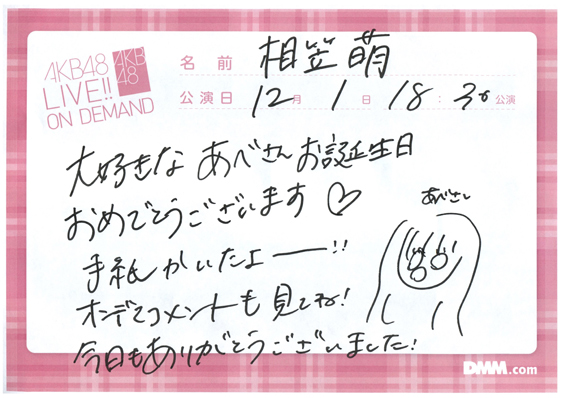 AKB48
LIVE!!
ON DEMAND
AKB
48
名前 相笠萌
公演日 12月1日 18:30公演
大好きな あべさんお誕生日
おめでとうございます♡
手紙かいたよー!!
オンデコメントも見てね!
今日もありがとうございました!
あべさん
DMM.com